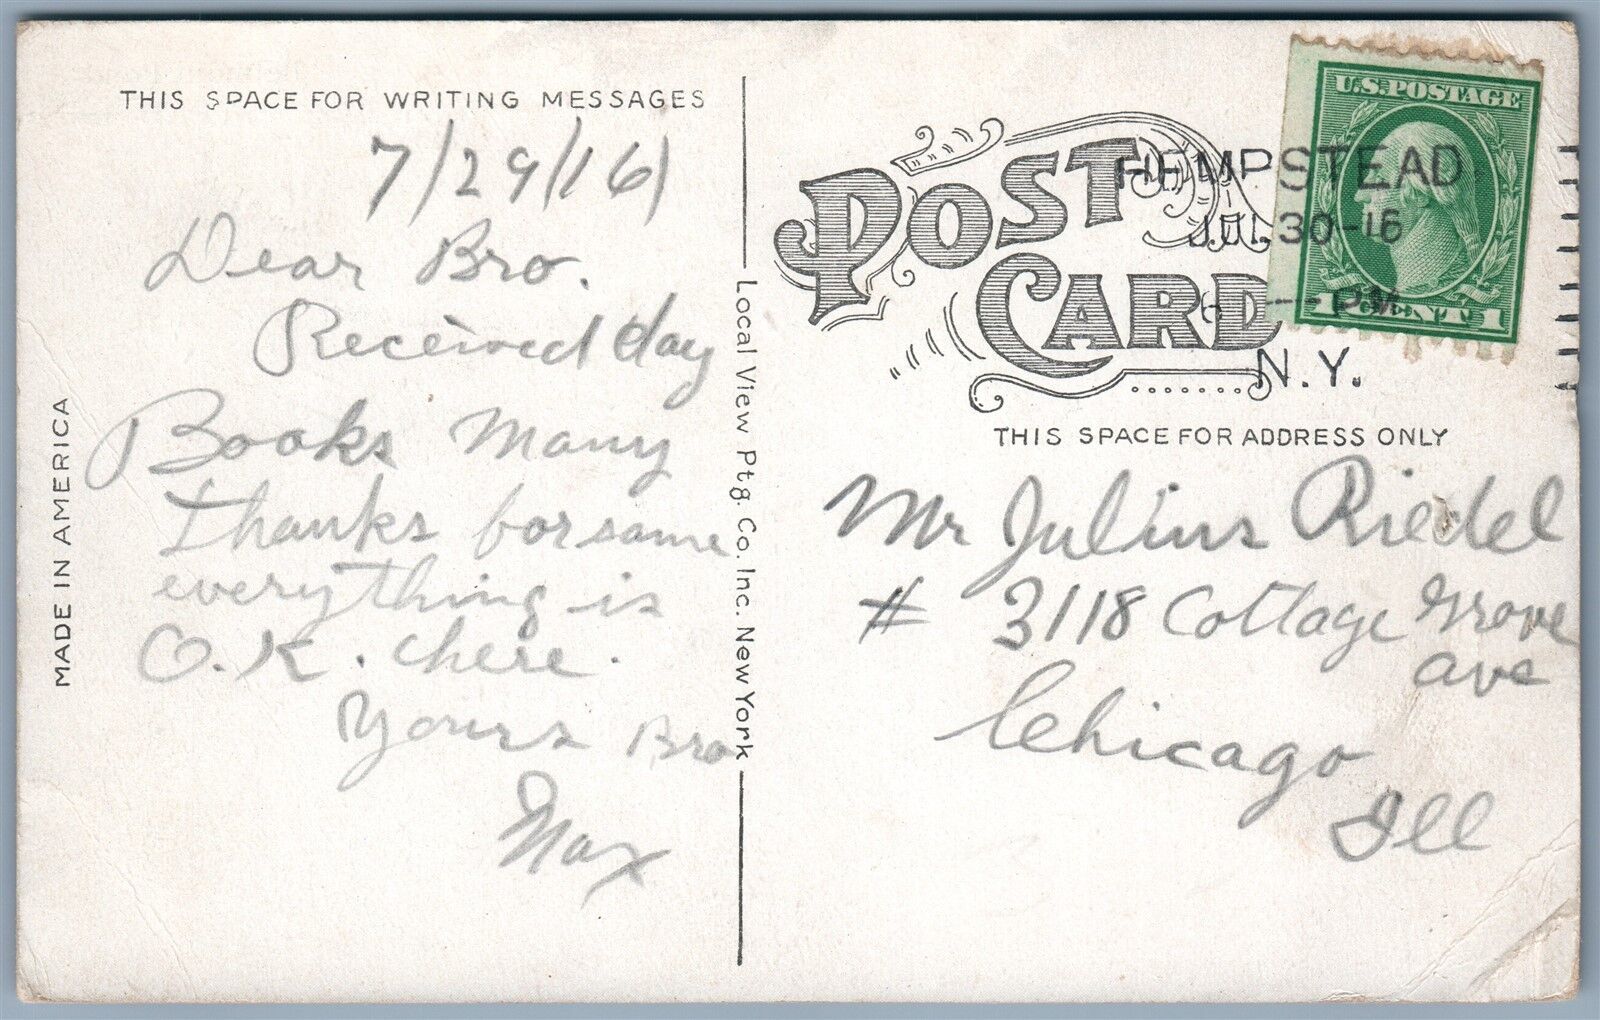 THIS SPACE FOR WRITING MESSAGES
7/29/16
Dear Bro.
Received day
Books Many
thanks for same
everything is
O.K. here.
Yours Bro
Max
MADE IN AMERICA
Local View Ptg. Co. Inc. New York
POST CARD
U.S. POSTAGE
1 CENT 1
HEMPSTEAD
JUL 30-16
PM
N.Y.
THIS SPACE FOR ADDRESS ONLY
Mr Julius Riedel
# 3118 Cottage Grove
ave
Chicago
Ill